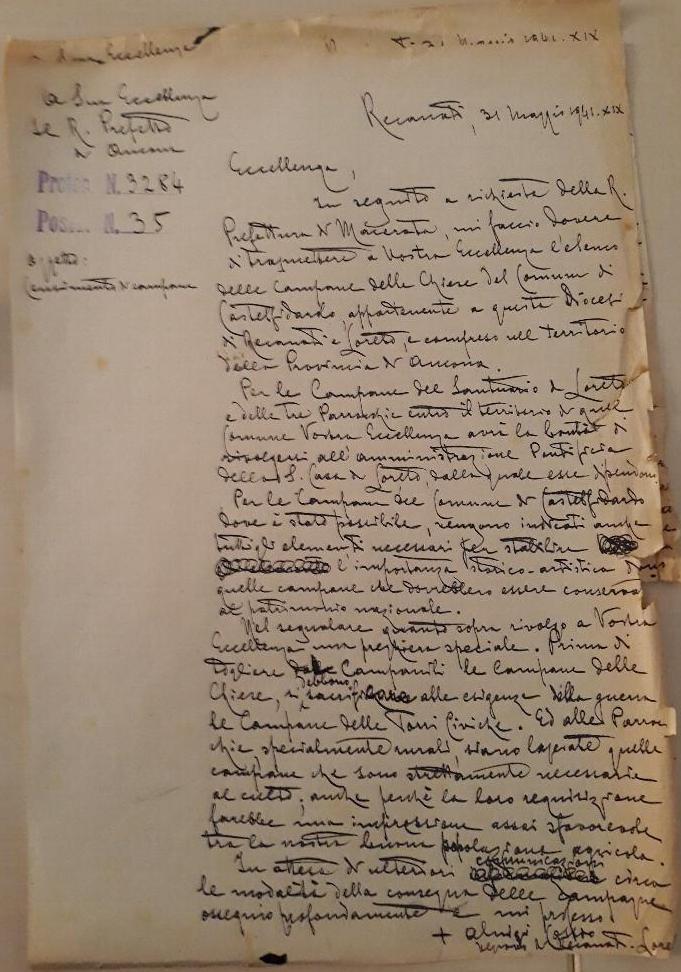 Sua Eccellenza
Maggio 1941. XIX
A Sua Eccellenza
Il R. Prefetto
di Ancona
Recanati, 31 Maggio 1941. XIX
Protoc. N. 3284
Pos. N. 35
Oggetto:
Censimento di campane
Eccellenza,
In seguito a richiesta della R.
Prefettura di Macerata, mi faccio dovere
di trasmettere a Vostra Eccellenza l'elenco
delle Campane delle Chiese del Comune di
Castelfidardo, appartenente a questa Diocesi
di Recanati e Loreto, e compreso nel territorio
della Provincia di Ancona.
Per le Campane del Santuario di Loreto
e delle tre Parrocchie entro il territorio di quel
Comune Vostra Eccellenza avrà la bontà di
rivolgersi all'amministrazione Pontificia
della S. Casa di Loreto, dalla quale esse dipendono
Per le Campane del Comune di Castelfidardo
dove è stato possibile, vengono indicati anche
tutti gli elementi necessari per stabilire
l'importanza storico-artistica
quelle campane che dovrebbero essere conserva
al patrimonio nazionale.
Nel segnalare quanto sopra rivolgo a Vostra
Eccellenza una preghiera speciale. Prima di
togliere dai Campanili le Campane delle
Chiese, si debbono sacrificare alle esigenze della guerra
le Campane delle Torri Civiche. Ed alle Parroc
chie specialmente rurali, siano lasciate quelle
campane che sono strettamente necessarie
al culto; anche perchè la loro requisizione
farebbe una impressione assai sfavorevole
tra la nostra buona popolazione agricola.
In attesa di ulteriori comunicazioni circa
le modalità della consegna delle campane
ossequio profondamente e mi professo
+ Aluigi Cossio
Vescovo di Recanati-Lore